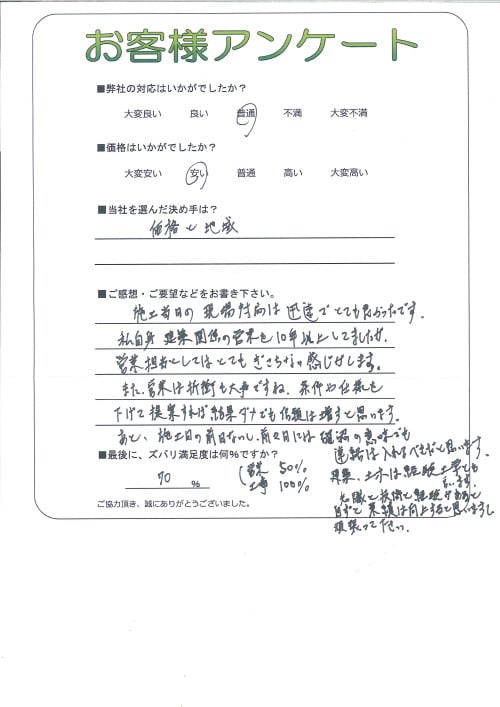 お客様アンケート
■弊社の対応はいかがでしたか？
大変良い 良い 普通 不満 大変不満
■価格はいかがでしたか？
大変安い 安い 普通 高い 大変高い
■当社を選んだ決め手は？
価格と地域
■ご感想・ご要望などをお書き下さい。
施工当日の現場対応は迅速でとても良かったです。
私自身建築関係の営業を10年以上してましたが、
営業担当としてはとてもぎこちない感じがします。
また、営業は折衝も大事ですね。条件や仕様を
下げて提案すれば結果ダメでも信頼は増すと思います。
あと、施工日の前日ないし前々日には確認の意味でも
連絡は入れるべきだと思います。
■最後に、ズバリ満足度は何％ですか？
70 %
営業 50%
工事 100%
建築、土木は経験工学とも
言います。
知識と技術と経験があると
自ずと業績は向上すると思いますし
頑張って下さい
ご協力頂き、誠にありがとうございました。